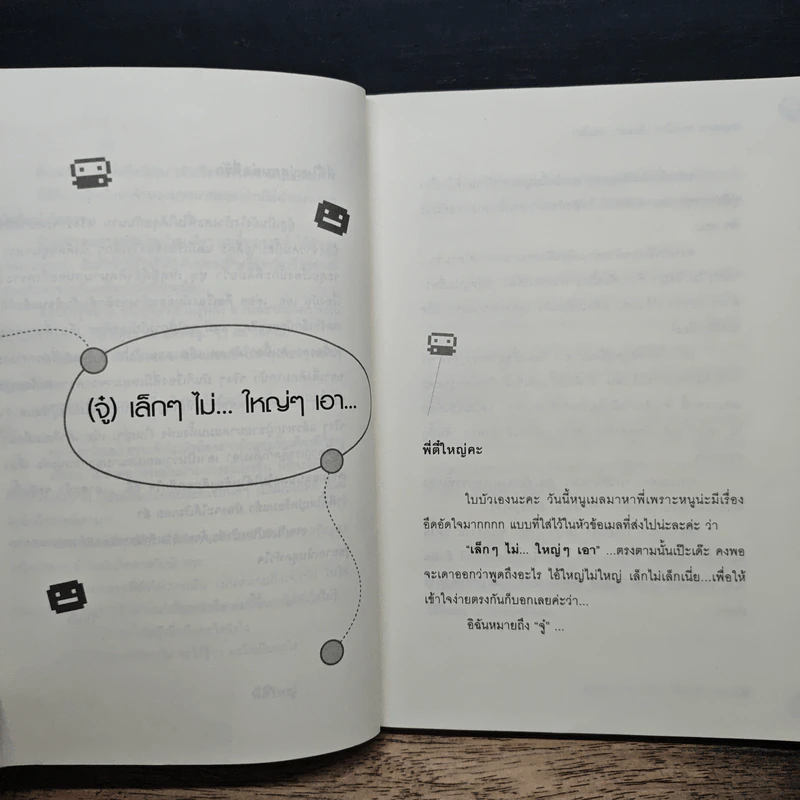 (จู๋) เล็กๆ ไม่... ใหญ่ๆ เอา...
พี่ตี๋ใหญ่คะ
ใบบัวเองนะคะ วันนี้หนูเมลมาหาพี่เพราะหนูน่ะมีเรื่อง
อึดอัดใจมากกกก แบบที่ใส่ไว้ในหัวข้อเมลที่ส่งไปน่ะละค่ะ ว่า
"เล็กๆ ไม่... ใหญ่ๆ เอา" ...ตรงตามนั้นเป๊ะเด๊ะ คงพอ
จะเดาออกว่าพูดถึงอะไร ไอ้ใหญ่ไม่ใหญ่ เล็กไม่เล็กเนี่ย...เพื่อให้
เข้าใจง่ายตรงกันก็บอกเลยค่ะว่า...
อิฉันหมายถึง "จู๋" ...